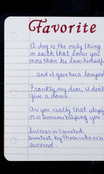 Favorite
A dog is the only thing
on earth that loves you
more than he loves himself.
and it gave us a
Frankly my dear, I don't
give a damn.
Are you really that
or is someone helping you
Success is counted
sweetest by those who ne'er
succeed.